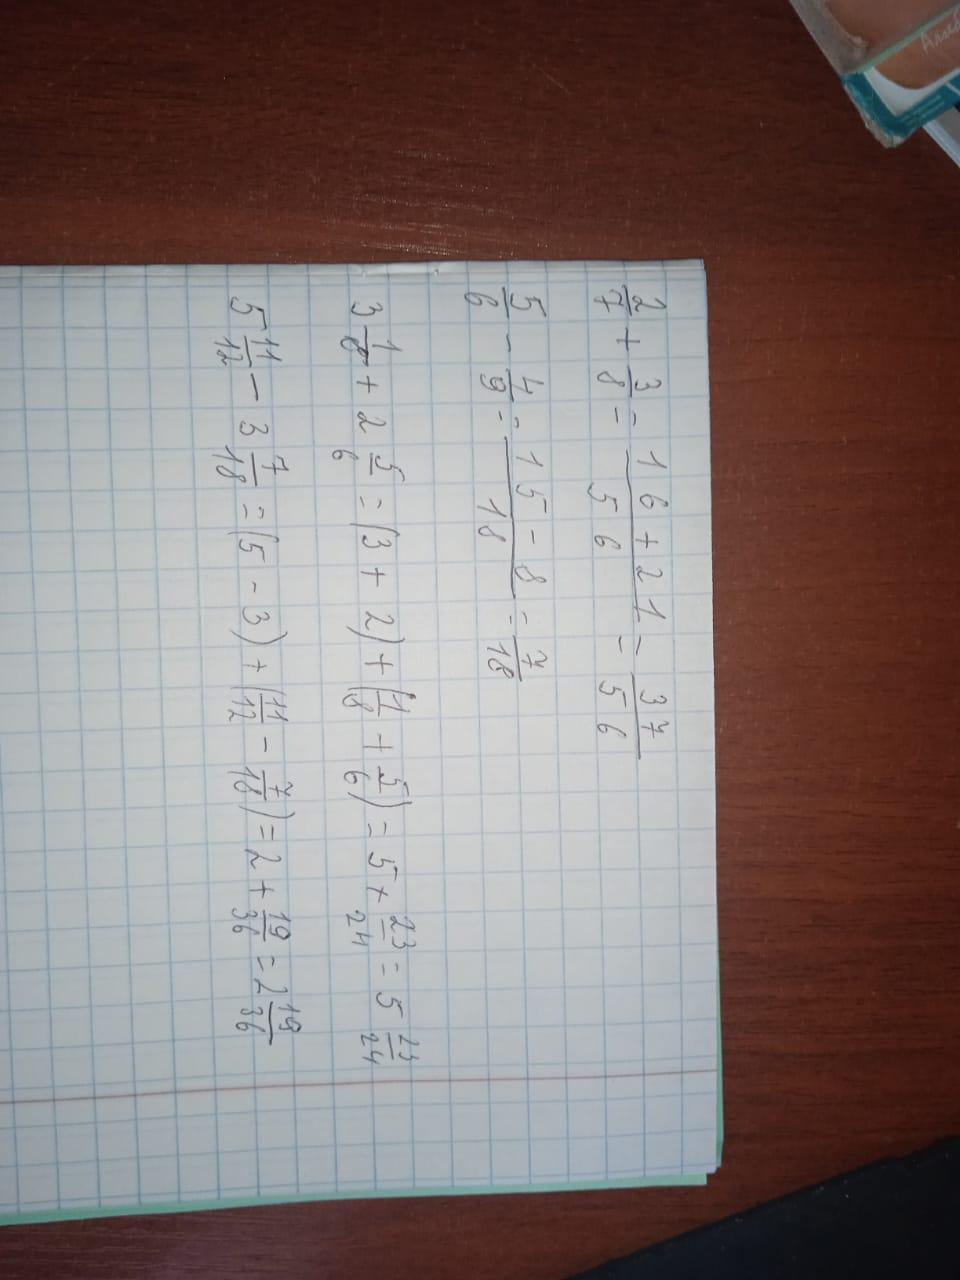 2/7 + 3/8 = 16+21/56 = 37/56
5/6 - 4/9 = 15-8/18 = 7/18
3 1/8 + 2 5/6 = (3 + 2) + (1/8 + 5/6) = 5 + 23/24 = 5 23/24
5 11/12 - 3 7/18 = (5 - 3) + (11/12 - 7/18) = 2 + 19/36 = 2 19/36